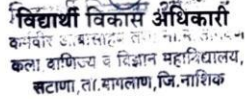 विद्यार्थी विकास अधिकारी
कर्मवीर
कला वाणिज्य व विज्ञान महाविद्यालय,
सटाणा,ता.बागलाण,जि.नाशिक